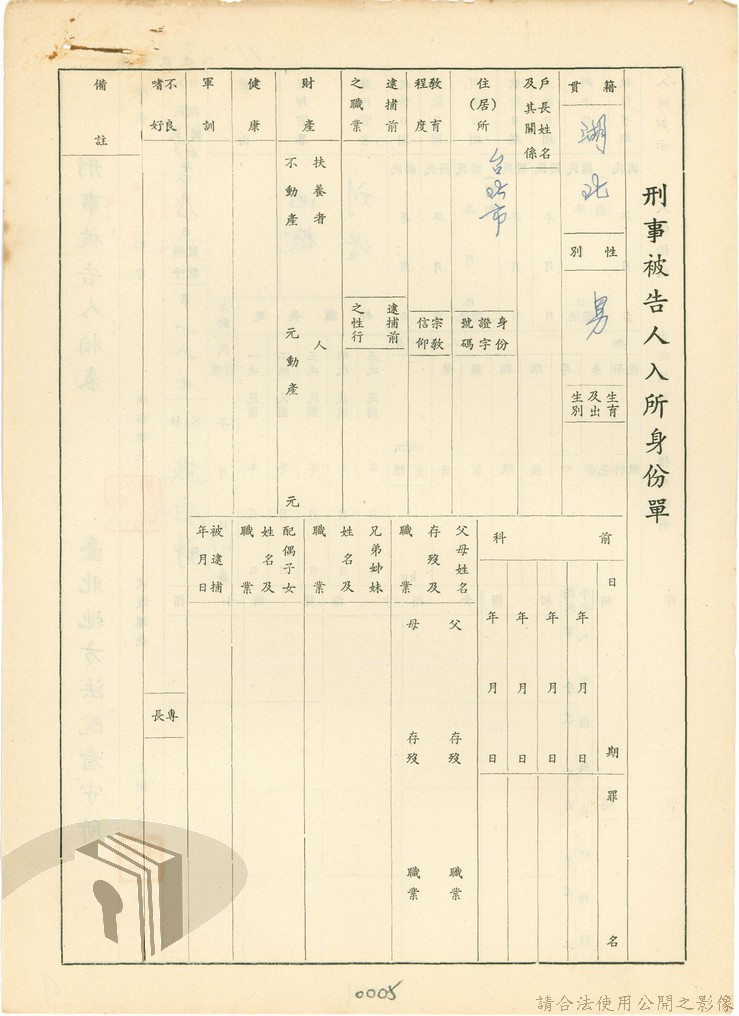 刑事被告人入所身份單
籍貫
湖北
性別
男
生育及出生別
戶長姓名及其關係
住(居)所
台北市
身份證字號碼
教育程度
宗教信仰
逮捕前之職業
逮捕前之性行
財產
扶養者 人
不動產 元
動產 元
健康
軍訓
不良嗜好
專長
備註
前科
日期
年 月 日
年 月 日
年 月 日
年 月 日
罪名
父母姓名存歿及職業
父 存歿 職業
母 存歿 職業
兄弟姊妹姓名及職業
配偶子女姓名及職業
被逮捕年月日
0005
請合法使用公開之影像